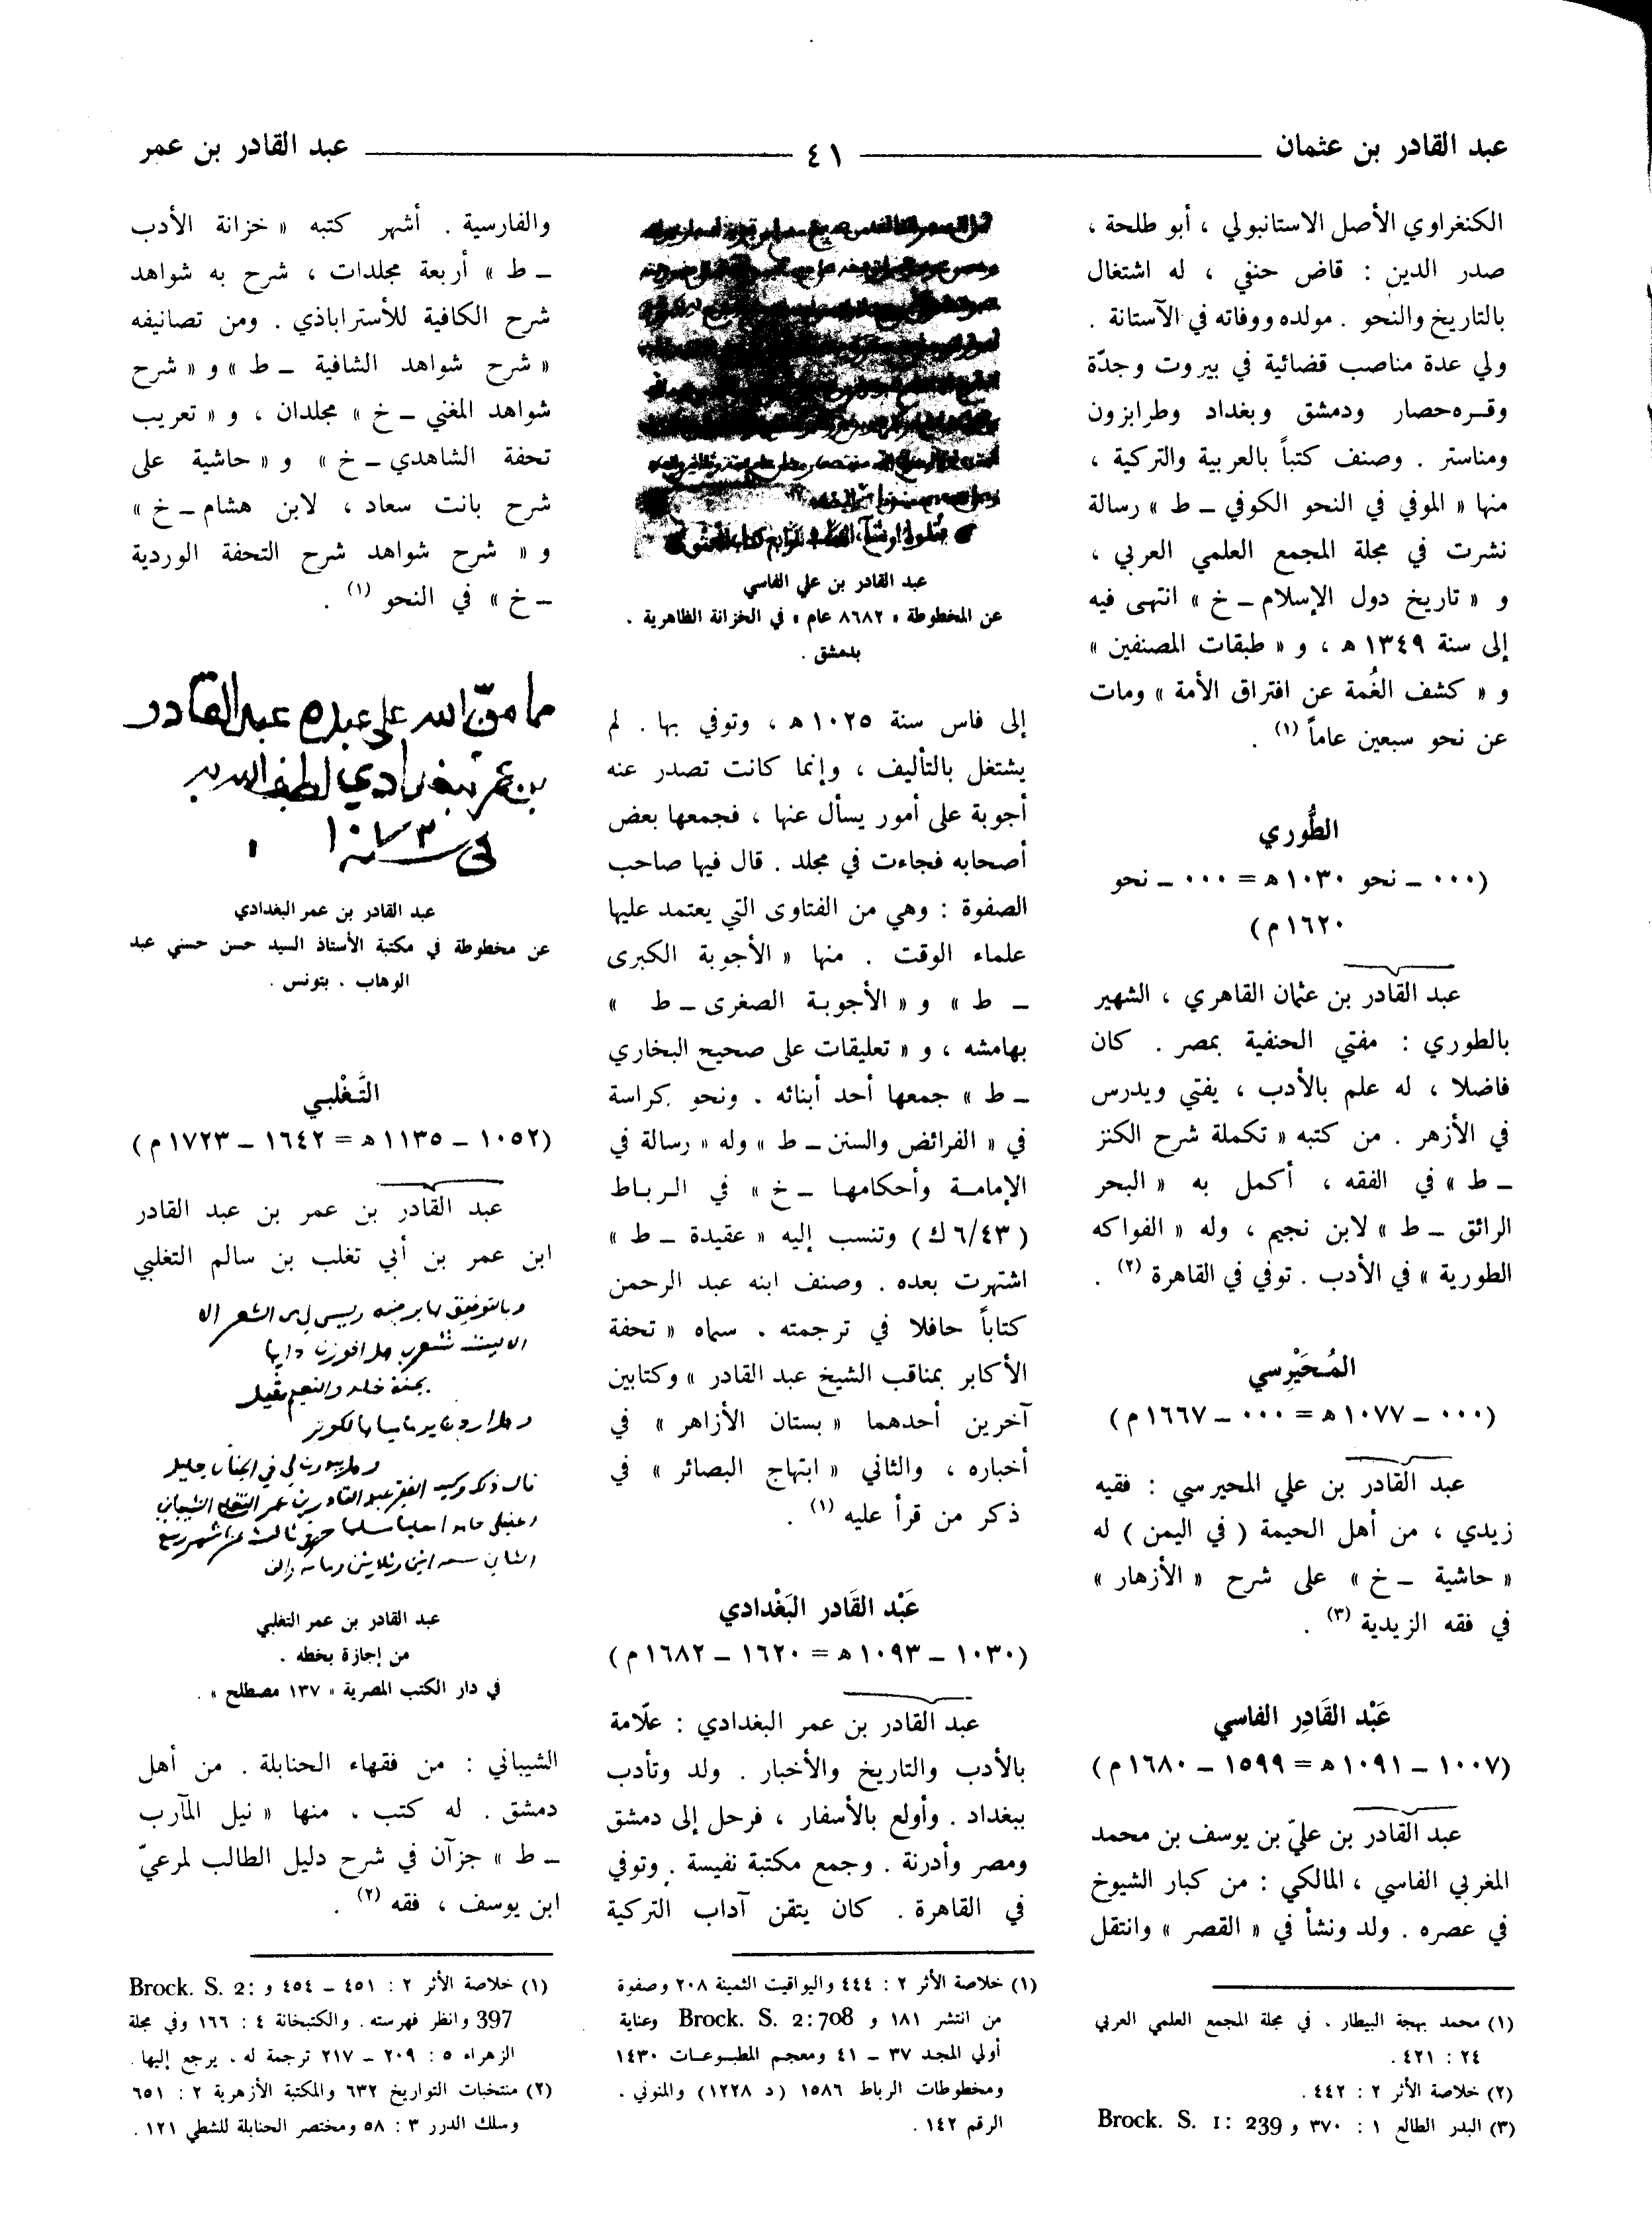 عبد القادر بن عثمان ٤١ عبد القادر بن عمر
الكنغراوي الأصل الاستانبولي ، أبو طلحة ،
صدر الدين : قاض حنفي ، له اشتغال
بالتاريخ والنحو . مولده ووفاته في الآستانة .
ولي عدة مناصب قضائية في بيروت وجدّة
وقره حصار ودمشق وبغداد وطرابزون
ومناستر . وصنف كتباً بالعربية والتركية ،
منها « الموفي في النحو الكوفي – ط » رسالة
نشرت في مجلة المجمع العلمي العربي ،
و « تاريخ دول الإسلام – خ » انتهى فيه
إلى سنة ١٣٤٩ ه ، و « طبقات المصنفين »
و « كشف الغُمة عن افتراق الأمة » ومات
عن نحو سبعين عاماً (١) .
الطُّوري
(٠٠٠ – نحو ١٠٣٠ ه = ٠٠٠ – نحو
١٦٢٠ م)
عبد القادر بن عثمان القاهري ، الشهير
بالطوري : مفتي الحنفية بمصر . كان
فاضلا ، له علم بالأدب ، يفتي ويدرس
في الأزهر . من كتبه « تكملة شرح الكنز
– ط » في الفقه ، أكمل به « البحر
الرائق – ط » لابن نجيم ، وله « الفواكه
الطورية » في الأدب . توفي في القاهرة (٢) .
المُحَيْرِسي
(٠٠٠ – ١٠٧٧ ه = ٠٠٠ – ١٦٦٧ م)
عبد القادر بن علي المحيرسي : فقيه
زيدي ، من أهل الحيمة ( في اليمن ) له
« حاشية – خ » على شرح « الأزهار »
في فقه الزيدية (٣) .
عَبْد القَادِر الفاسي
(١٠٠٧ – ١٠٩١ ه = ١٥٩٩ – ١٦٨٠ م)
عبد القادر بن عليّ بن يوسف بن محمد
المغربي الفاسي ، المالكي : من كبار الشيوخ
في عصره . ولد ونشأ في « القصر » وانتقل
(١) محمد بهجة البيطار . في مجلة المجمع العلمي العربي
٢٤ : ٤٢١ .
(٢) خلاصة الأثر ٢ : ٤٤٢ .
(٣) البدر الطالع ١ : ٣٧٠ و Brock. S. 1: 239
عبد القادر بن علي الفاسي
عن المخطوطة « ٨٦٨٢ عام » في الخزانة الظاهرية .
بدمشق .
إلى فاس سنة ١٠٢٥ ه ، وتوفي بها . لم
يشتغل بالتأليف ، وإنما كانت تصدر عنه
أجوبة على أمور يسأل عنها ، فجمعها بعض
أصحابه فجاءت في مجلد . قال فيها صاحب
الصفوة : وهي من الفتاوى التي يعتمد عليها
علماء الوقت . منها « الأجوبة الكبرى
– ط » و « الأجوبة الصغرى – ط »
بهامشه ، و « تعليقات على صحيح البخاري
– ط » جمعها أحد أبنائه . ونحو كراسة
في « الفرائض والسنن – ط » وله « رسالة في
الإمامة وأحكامها – خ » في الرباط
(٦/٤٣ ك) وتنسب إليه « عقيدة – ط »
اشتهرت بعده . وصنف ابنه عبد الرحمن
كتاباً حافلا في ترجمته . سماه « تحفة
الأكابر بمناقب الشيخ عبد القادر » وكتابين
آخرين أحدهما « بستان الأزاهر » في
أخباره ، والثاني « ابتهاج البصائر » في
ذكر من قرأ عليه (١) .
عَبْد القَادر البَغْدادي
(١٠٣٠ – ١٠٩٣ ه = ١٦٢٠ – ١٦٨٢ م)
عبد القادر بن عمر البغدادي : علّامة
بالأدب والتاريخ والأخبار . ولد وتأدب
ببغداد . وأولع بالأسفار ، فرحل إلى دمشق
ومصر وأدرنة . وجمع مكتبة نفيسة . وتوفي
في القاهرة . كان يتقن آداب التركية
(١) خلاصة الأثر ٢ : ٤٤٤ واليواقيت الثمينة ٢٠٨ وصفوة
من انتشر ١٨١ و Brock. S. 2:708 وعناية
أولي المجد ٣٧ – ٤١ ومعجم المطبوعات ١٤٣٠
ومخطوطات الرباط ١٥٨٦ (د ١٢٢٨) والمنوني .
الرقم ١٤٢ .
والفارسية . أشهر كتبه « خزانة الأدب
– ط » أربعة مجلدات ، شرح به شواهد
شرح الكافية للأسترابادي . ومن تصانيفه
« شرح شواهد الشافية – ط » و « شرح
شواهد المغني – خ » مجلدان ، و « تعريب
تحفة الشاهدي – خ » و « حاشية على
شرح بانت سعاد ، لابن هشام – خ »
و « شرح شواهد شرح التحفة الوردية
– خ » في النحو (١) .
مما منّ الله على عبده عبد القادر
بن عمر البغدادي لطف الله به
في سنة ١٠٧٣
عبد القادر بن عمر البغدادي
عن مخطوطة في مكتبة الأستاذ السيد حسن حسني عبد
الوهاب . بتونس .
التَّغْلبي
(١٠٥٢ – ١١٣٥ ه = ١٦٤٢ – ١٧٢٣ م)
عبد القادر بن عمر بن عبد القادر
ابن عمر بن أبي تغلب بن سالم التغلبي
عبد القادر بن عمر التغلبي
من إجازة بخطه .
في دار الكتب المصرية « ١٣٧ مصطلح » .
الشيباني : من فقهاء الحنابلة . من أهل
دمشق . له كتب . منها « نيل المآرب
– ط » جزآن في شرح دليل الطالب لمرعيّ
ابن يوسف ، فقه (٢) .
(١) خلاصة الأثر ٢ : ٤٥١ – ٤٥٤ و Brock. S. 2:
397 وانظر فهرسته . والكتبخانة ٤ : ١٦٦ وفي مجلة
الزهراء ٥ : ٢٠٩ – ٢١٧ ترجمة له . يرجع إليها .
(٢) منتخبات التواريخ ٦٣٢ والمكتبة الأزهرية ٢ : ٦٥١
وسلك الدرر ٣ : ٥٨ ومختصر الحنابلة للشطي ١٢١ .